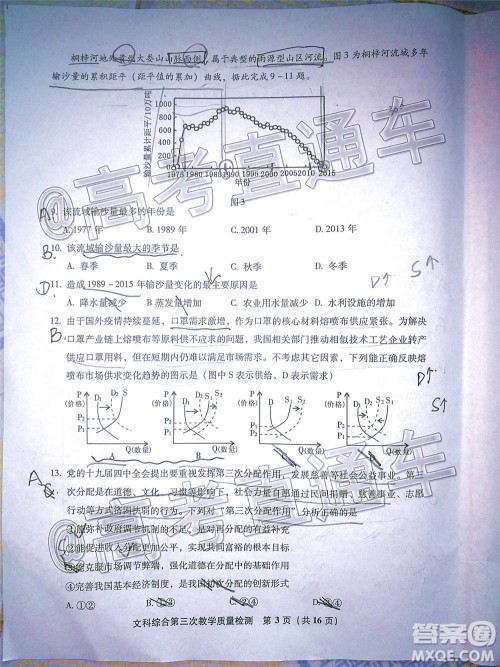 桐梓河地处贵州大娄山山脉西侧，属于典型的雨源型山区河流。图3为桐梓河流域多年
输沙量的累积距平（距平值的累加）曲线，据此完成9－11题。
输沙量累计距平/10万吨
1000
800
600
400
200
0
1975 1980 1985 1990 1995 2000 2005 2010 2015
年份
图3
A. 9. 该流域输沙量最多的年份是
A. 1977年 B. 1989年 C. 2001年 D. 2013年
B. 10. 该流域输沙量最大的季节是
A. 春季 B. 夏季 C. 秋季 D. 冬季
D. 11. 造成1989－2015年输沙量变化的最主要原因是
D↑ S↑
A. 降水量减少 B. 蒸发量减少 C. 农业用水量减少 D. 水利设施的增加
B 12. 由于国外疫情持续蔓延，口罩需求增加，作为口罩的核心材料熔喷布供应紧张。为解
决口罩产业链上熔喷布等原料供不应求的问题，我国相关部门推动相似技术工艺企业转
产供应口罩用料，但短时期仍难以满足市场需求。不考虑其它因素，下列能正确反映熔
喷布市场供求变化趋势的图示是（图中S表示供给，D表示需求）
D↑
S↑
P (价格) D1 D2 S P2 P1 Q(数量)
A
P (价格) D1 D2 S1 S2 P2 P1 Q(数量)
B
P (价格) D S1 S2 P1 P2 Q(数量)
P (价格) Q(数量)
A 13. 党的十九届四中全会提出要重视发挥第三次分配作用，发展慈善等社会公益事业。第三
次分配是在道德、文化、习惯等影响下，社会力量自愿通过民间捐赠、慈善事业、志愿
行动等方式济困扶弱的行为。下列对“第三次分配作用”分析正确的是
①能弥补政府调节机制的不足，是对再分配的有益补充
②能促进收入分配更加公平，为实现共同富裕的作用不容忽视
③能克服市场调节弊端，强化道德在分配中的影响
④完善我国基本经济制度，是我国初次分配的创新形式
A. ①② B. ①④
文科综合第三次教学质量检测 第3页（共16页）
@高考直通车
@高考直通车
答案圈
MXQE.COM